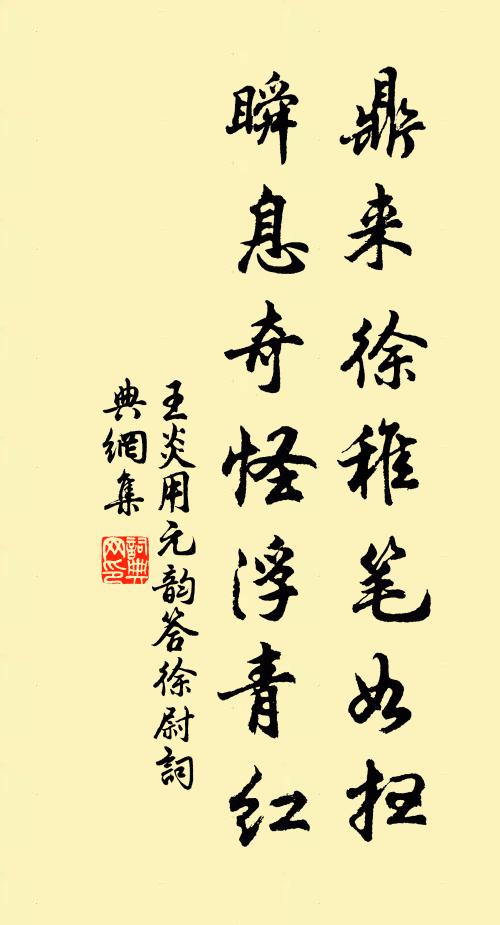 鼎来徐稚笔如扛
瞬息奇怪浮青红
王炎用元韵答徐尉詞
典網集
詞典
网印